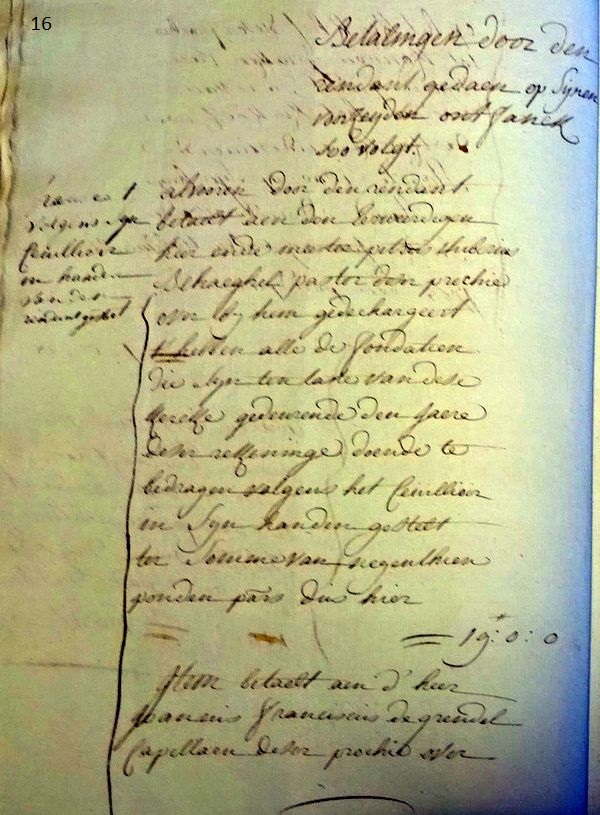 16
Betalingen door den
rendant gedaen op synen
voorseyden ontfanck
als volgt.
alvooren door den rendant
betaelt aen den Eerweerdigen
heer ende meester
De haeghe pastor deser prochie
over by hem gedechargeert
t' hebben alle de fondatien
die syn ten laste van dese
kercke geduerende den jaere
deser rekeninge doende te
bedragen volgens het Ceuillioir
in syn handen gestelt
ter somme van negenthien
ponden pars dus hier
19: 0: 0
volgens
Ceuillioir
in handen
van den
rendant gestelt
Item betaelt aen d' heer
Joannes Franciscus de grendel
Capellaen deser prochie over